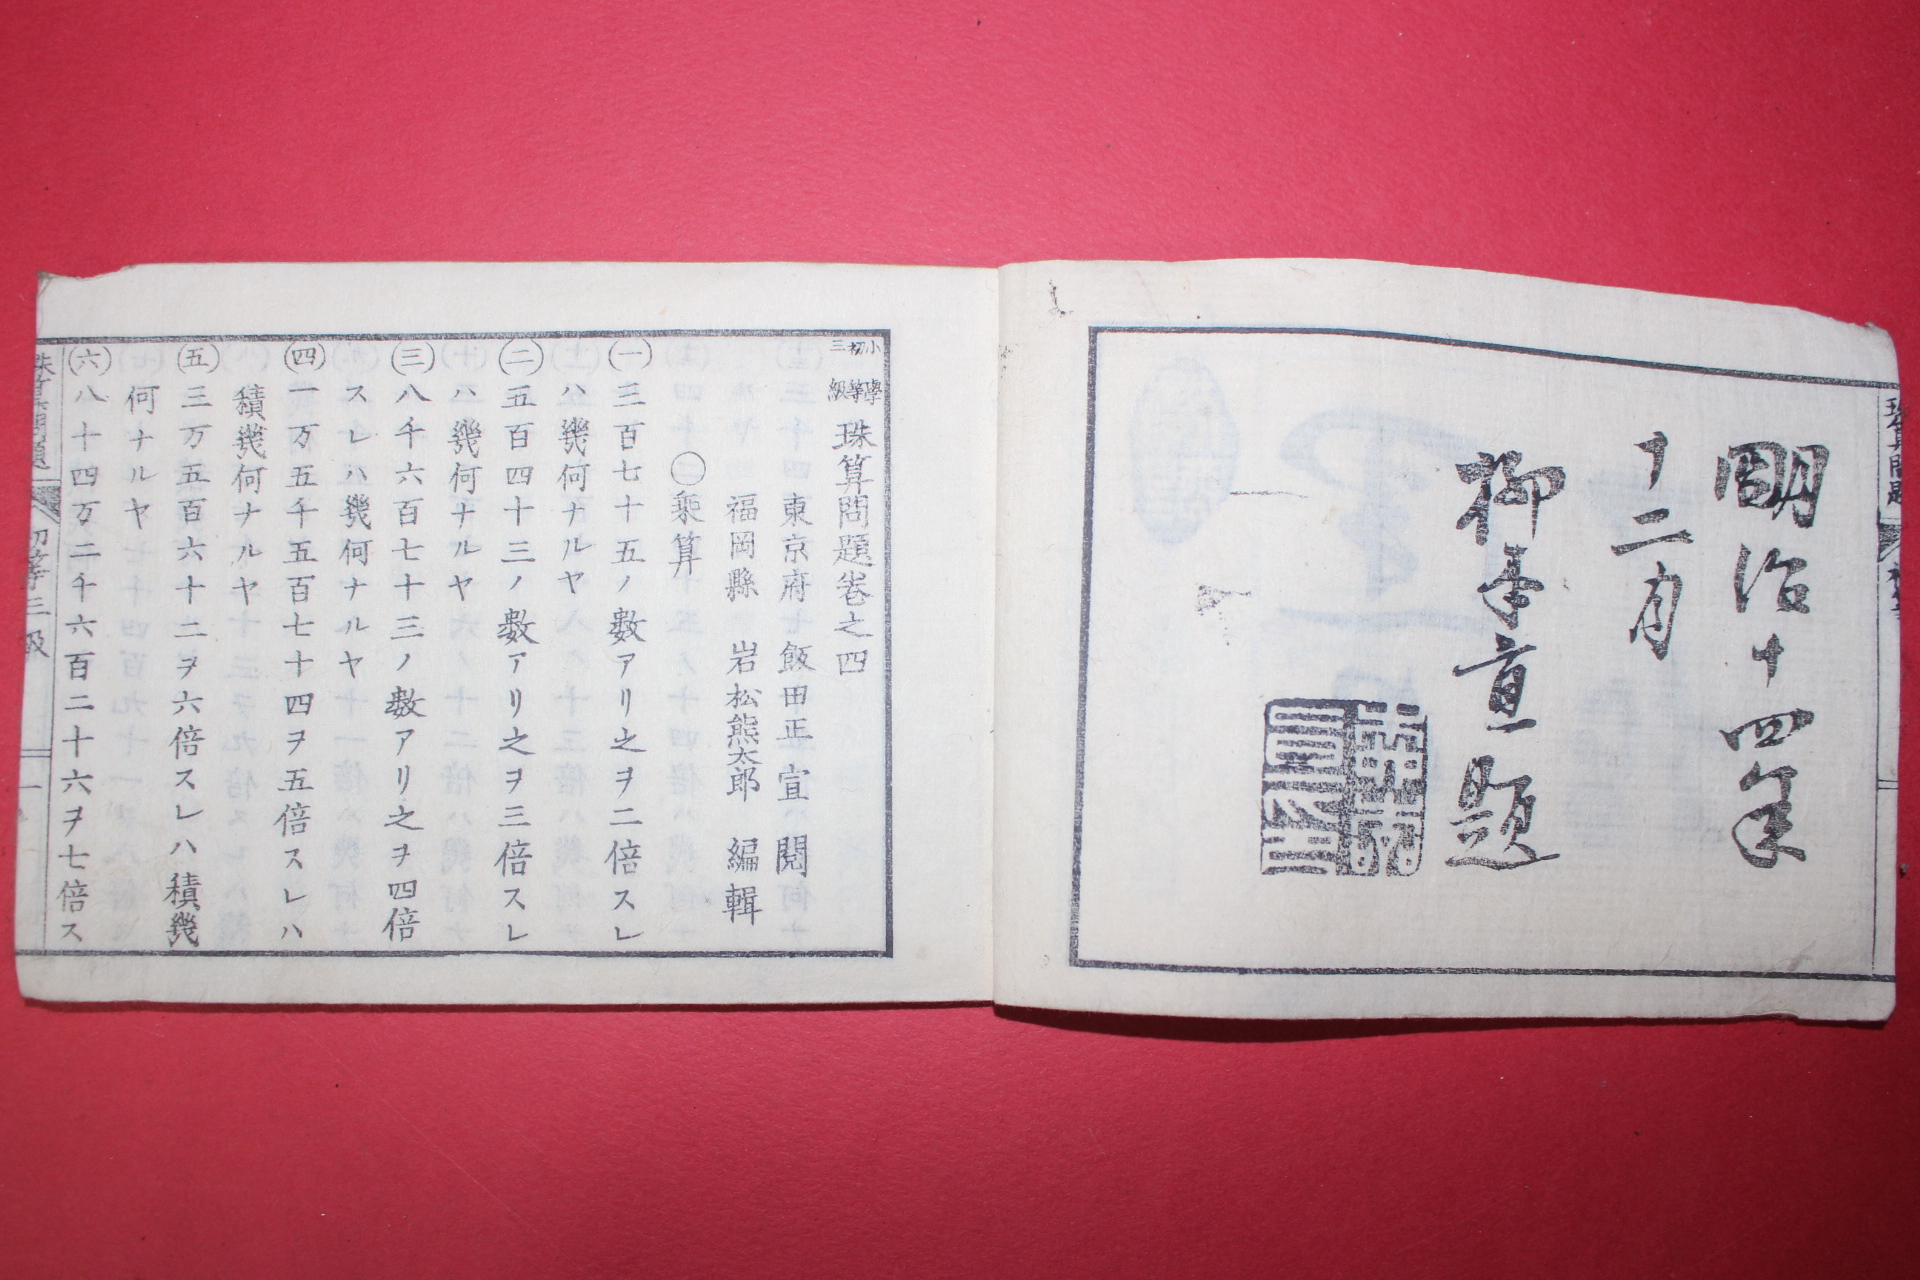 明治十四年
十二月
柳本直題
小學
初等
三級
珠算問題卷之四
東京府 飯田正宣 閲
福岡縣 岩松熊太郎 編輯
〇乘算
(一)三百七十五ノ數アリ之ヲ二倍スレ
ハ幾何ナルヤ
(二)五百四十三ノ數アリ之ヲ三倍スレ
ハ幾何ナルヤ
(三)八千六百七十三ノ數アリ之ヲ四倍
スレハ幾何ナルヤ
(四)一万五千五百七十四ヲ五倍スレハ
積幾何ナルヤ
(五)三万五百六十二ヲ六倍スレハ積幾
何ナルヤ
(六)八十四万二千六百二十六ヲ七倍ス
珠算問題 初等三級 一